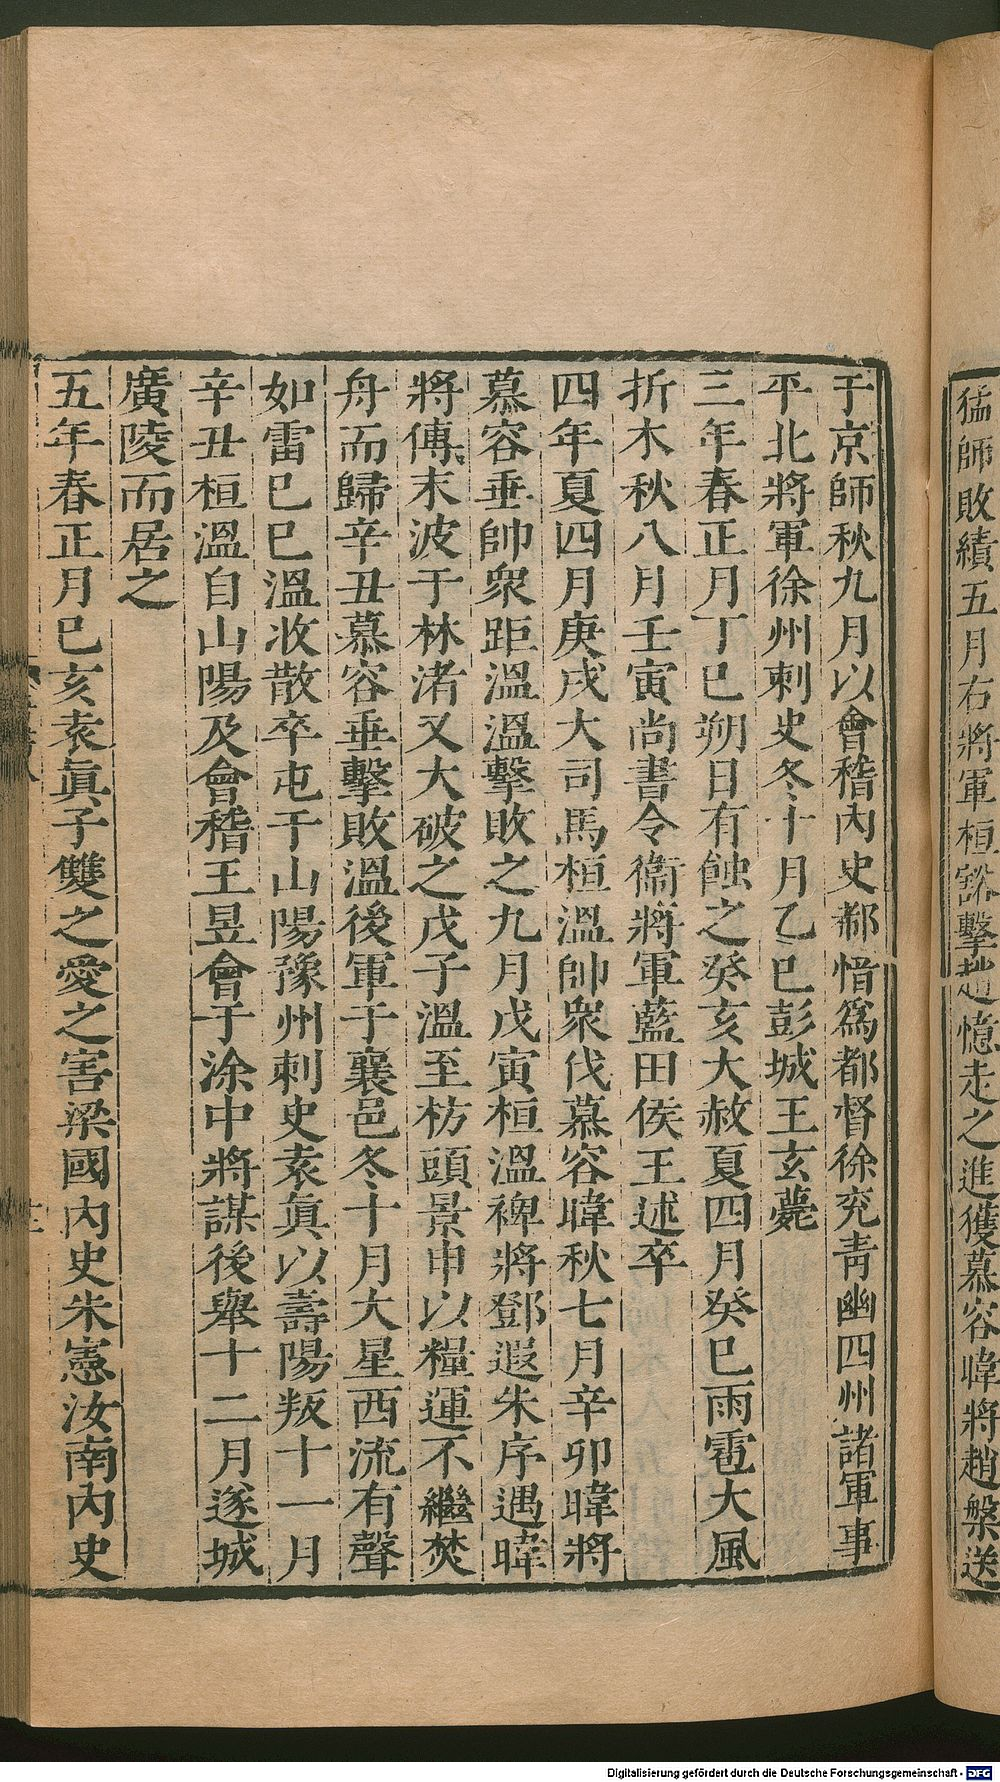 猛師敗績五月右將軍桓豁擊趙憶走之進獲慕容暐將趙槃送
于京師秋九月以會稽內史郗愔爲都督徐兖青幽四州諸軍事
平北將軍徐州刺史冬十月乙巳彭城王玄薨
三年春正月丁巳朔日有蝕之癸亥大赦夏四月癸巳雨雹大風
折木秋八月壬寅尚書令衞將軍藍田侯王述卒
四年夏四月庚戌大司馬桓溫帥衆伐慕容暐秋七月辛卯暐將
慕容垂帥衆距溫溫擊敗之九月戊寅桓溫裨將鄧遐朱序遇暐
將傅末波于林渚又大破之戊子溫至枋頭景申以糧運不繼焚
舟而歸辛丑慕容垂擊敗溫後軍于襄邑冬十月大星西流有聲
如雷巳巳溫收散卒屯于山陽豫州刺史袁眞以壽陽叛十一月
辛丑桓溫自山陽及會稽王昱會于涂中將謀後舉十二月遂城
廣陵而居之
五年春正月巳亥袁眞子雙之愛之害梁國內史朱憲汝南內史
Digitalisierung gefördert durch die Deutsche Forschungsgemeinschaft - DFG